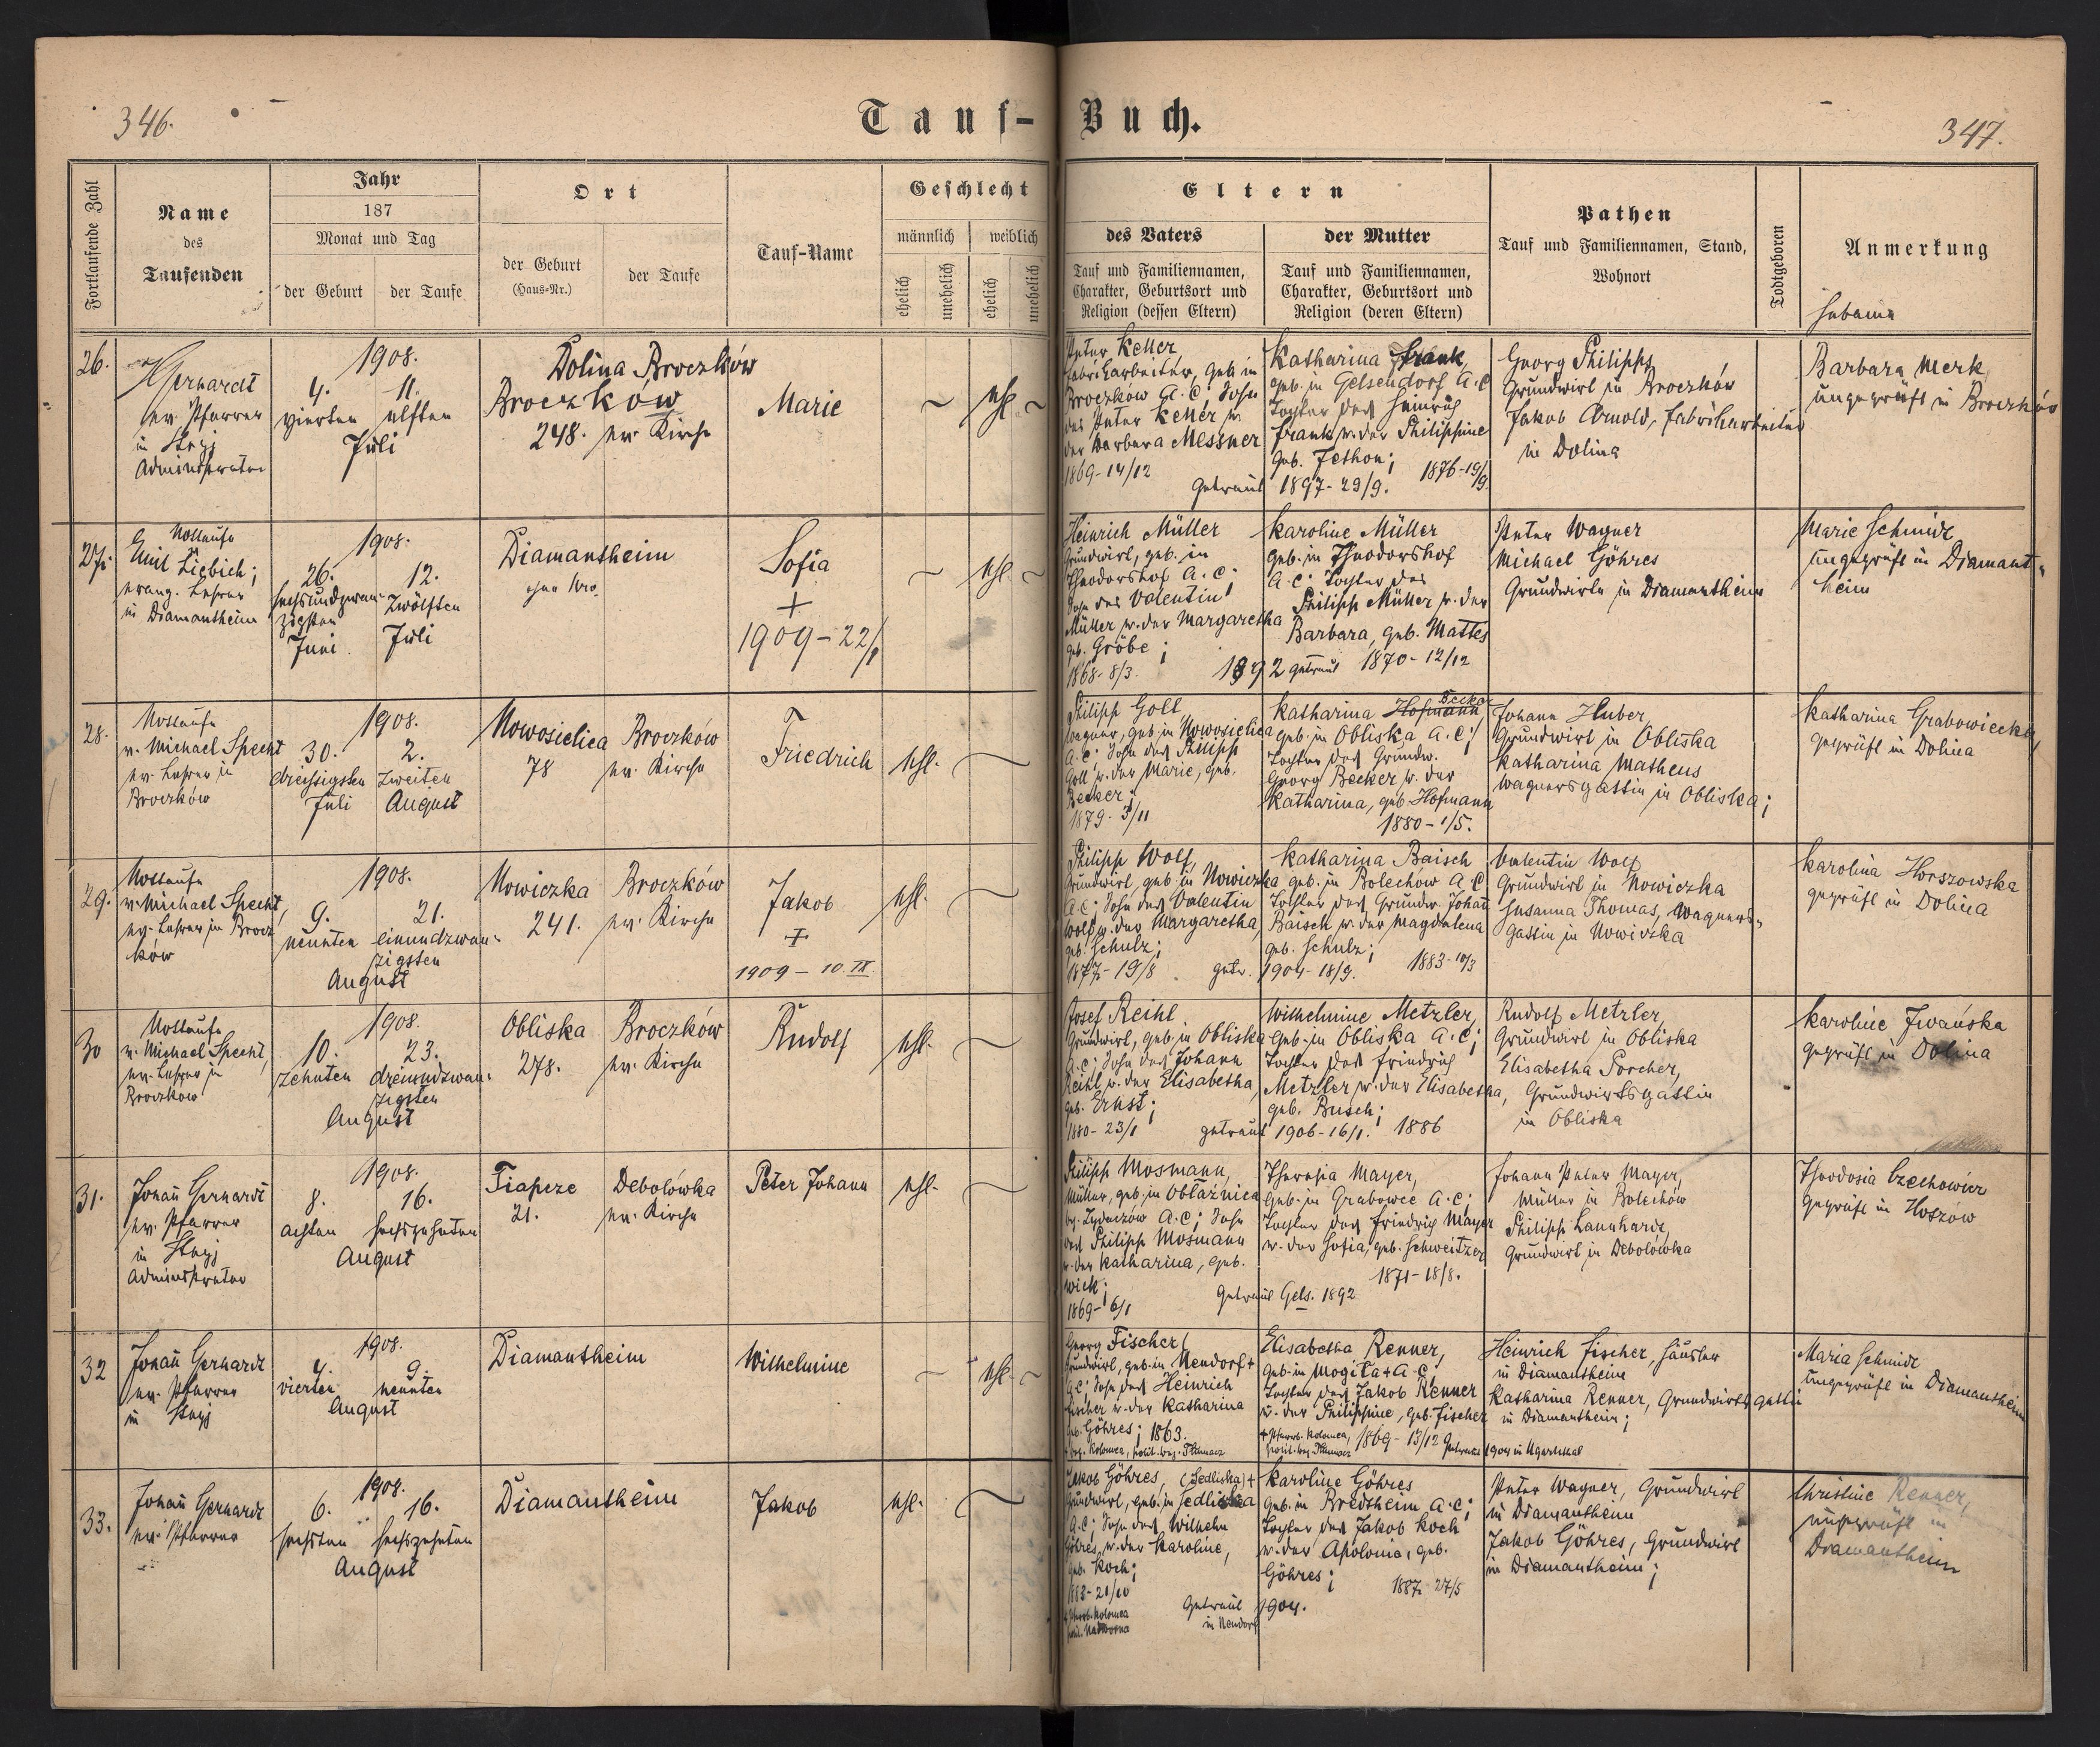 346.
Tauf-Buch.
347.
Fortlaufende Zahl
Name
des
Taufenden
Jahr
187
Monat und Tag
der Geburt
der Taufe
Ort
der Geburt
(Haus-Nr.)
der Taufe
Tauf-Name
Geschlecht
männlich
weiblich
ehelich
unehelich
ehelich
unehelich
Eltern
des Vaters
Tauf und Familiennamen,
Charakter, Geburtsort und
Religion (dessen Eltern)
der Mutter
Tauf und Familiennamen,
Charakter, Geburtsort und
Religion (deren Eltern)
Pathen
Tauf und Familiennamen, Stand,
Wohnort
Todtgeboren
Anmerkung
Hebame
26.
Gerhardt
ev. Pfarrer
in Stryj
Administrator
1908.
4.
vierten
11.
elften
Juli
Dolina Broczków
Broczków
248. ev. Kirche
Marie
~
ehl. ~
Peter Keller,
Fabriksarbeiter, geb. in
Broczków A.C; Sohn
des Peter Keller u.
der Barbara Messner
1869-14/12
Getraut
Katharina Frank,
geb. in Gelsendorf A.C
Tochter des Heinrich
Frank u. der Philippine
geb. Jethon;
1876-19/9.
1897-29/9.
Georg Philipps
Grundwirt in Broczków
Jakob Arnold, Fabriksarbeiter
in Dolina
Barbara Merk,
ungeprüft in Broczków
27.
Nottaufe
Emil Liebich;
evang. Lehrer
in Diamantheim
1908.
26.
sechsundzwan-
zigsten
Juni
12.
zwölften
Juli
Diamantheim
ohne Nro.
Sofia
+
1909-22/1
~
ehl. ~
Heinrich Müller
Grundwirt, geb. in
Theodorshof A.C;
Sohn des Valentin
Müller u. der Margaretha
geb. Gröbe;
1868-8/3.
1892 getraut
Karoline Müller
geb. in Theodorshof
A.C; Tochter des
Philipp Müller u. der
Barbara, geb. Mattes
1870-12/12
Peter Wagner
Michael Göhres
Grundwirte in Diamantheim
Marie Schmidt
ungeprüft in Diamant-
heim
28.
Nottaufe
v. Michael Specht
ev. Lehrer in
Broczków
1908.
30.
dreissigsten
Juli
2.
zweiten
August
Nowosielica
78
Broczków
ev. Kirche
Friedrich
ehl.
~
Philipp Goll
Wagner, geb. in Nowosielica
A.C; Sohn des Philipp
Goll u. der Marie, geb.
Becker;
1879-3/11
Katharina Hofmann Becker
geb. in Obliska A.C;
Tochter des Grundw.
Georg Becker u. der
Katharina, geb. Hofmann
1880-1/5.
Johann Huber,
Grundwirt in Obliska
Katharina Matheus
Wagnersgattin in Obliska;
Katharina Grabowiecka,
geprüft in Dolina
29.
Nottaufe
v. Michael Specht,
ev. Lehrer in Brocz
ków
1908.
9.
neunten
21.
einundzwan-
zigsten
August
Nowiczka
241.
Broczków
ev. Kirche
Jakob
+
1909-10.III.
ehl.
~
Philipp Wolf,
Grundwirt, geb. in Nowiczka
A.C; Sohn des Valentin
Wolf u. der Margaretha,
geb. Schulz;
1877-19/8
getr.
Katharina Baisch
geb. in Bolechów A.C
Tochter des Grundw. Johann
Baisch u. der Magdalena
geb. Schulz;
1904-18/9.
1883-10/3
Valentin Wolf
Grundwirt in Nowiczka
Susanna Thomas, Wagners-
gattin in Nowiczka
Karolina Horszowska
geprüft in Dolina
30
Nottaufe
v. Michael Specht,
ev. Lehrer in
Broczków
1908.
10.
zehnten
23.
dreiundzwan-
zigsten
August
Obliska
278.
Broczków
ev. Kirche
Rudolf
ehl.
~
Josef Reihl
Grundwirt, geb. in Obliska
A.C; Sohn des Johann
Reihl u. der Elisabetha,
geb. Ernst;
1880-23/1
getraut
Wilhelmine Metzler,
geb. in Obliska A.C;
Tochter des Friedrich
Metzler u. der Elisabetha,
geb. Busch;
1906-16/1.
1886
Rudolf Metzler,
Grundwirt in Obliska
Elisabetha Porcher,
Grundwirtsgattin
in Obliska
Karoline Iwańska
geprüft in Dolina
31.
Johann Gerhardt
ev. Pfarrer
in Stryj
Administrator
1908.
8.
achten
16.
sechszehnten
August
Tiapcze
21.
Debolówka
ev. Kirche
Peter Johann
ehl.
~
Philipp Mosmann,
Müller, geb. in Obłaźnica
bz. Żydaczów A.C; Sohn
des Philipp Mosmann
u. der Katharina, geb.
Wick;
1869-6/1
Getraut Gels. 1892
Theresia Mayer,
geb. in Grabowce A.C;
Tochter des Friedrich Mayer
u. der Sofia, geb. Schweitzer
1871-18/8.
Johann Peter Mayer,
Müller in Bolechów
Philipp Lannhardt,
Grundwirt in Debolówka
Theodosia Czechowicz
geprüft in Hoszow
32
Johann Gerhardt
ev. Pfarrer
in Stryj
1908.
4.
vierten
9.
neunten
August
Diamantheim
Wilhelmine
~
ehl. ~
Georg Fischer,
Grundwirt, geb. in Neudorf +
A.C; Sohn des Heinrich
Fischer u. der Katharina
geb. Göhres; 1863.
bez. Kolomea, polit. bez. Tłumacz
Elisabetha Renner,
geb. in Mogiła + A.C,
Tochter des Jakob Renner
u. der Philippine, geb. Fischer
+ Pfarrb. Kolomea,
polit. bez. Tłumacz
1869-13/12 Getraut 1904 in Ugartsthal
Heinrich Fischer, Häusler
in Diamantheim
Katharina Renner, Grundwirtsgattin
in Diamantheim;
Maria Schmidt
ungeprüft in Diamantheim
33.
Johann Gerhardt
ev. Pfarrer
1908.
6.
sechsten
16.
sechszehnten
August
Diamantheim
Jakob
ehl.
~
Jakob Göhres, (Sedliska) +
Grundwirt, geb. in Sedliska
A.C; Sohn des Wilhelm
Göhres, u. der Karoline,
geb. Koch;
1882-21/10
+ Pfarrb. Kolomea
polit. Nadworna
Getraut 1904.
in Neudorf
Karoline Göhres
geb. in Bredtheim A.C;
Tochter des Jakob Koch
u. der Apolonia, geb.
Göhres;
1887-27/5
Peter Wagner, Grundwirt
in Diamantheim
Jakob Göhres, Grundwirt
in Diamantheim;
Christine Renner,
ungeprüft in
Diamantheim